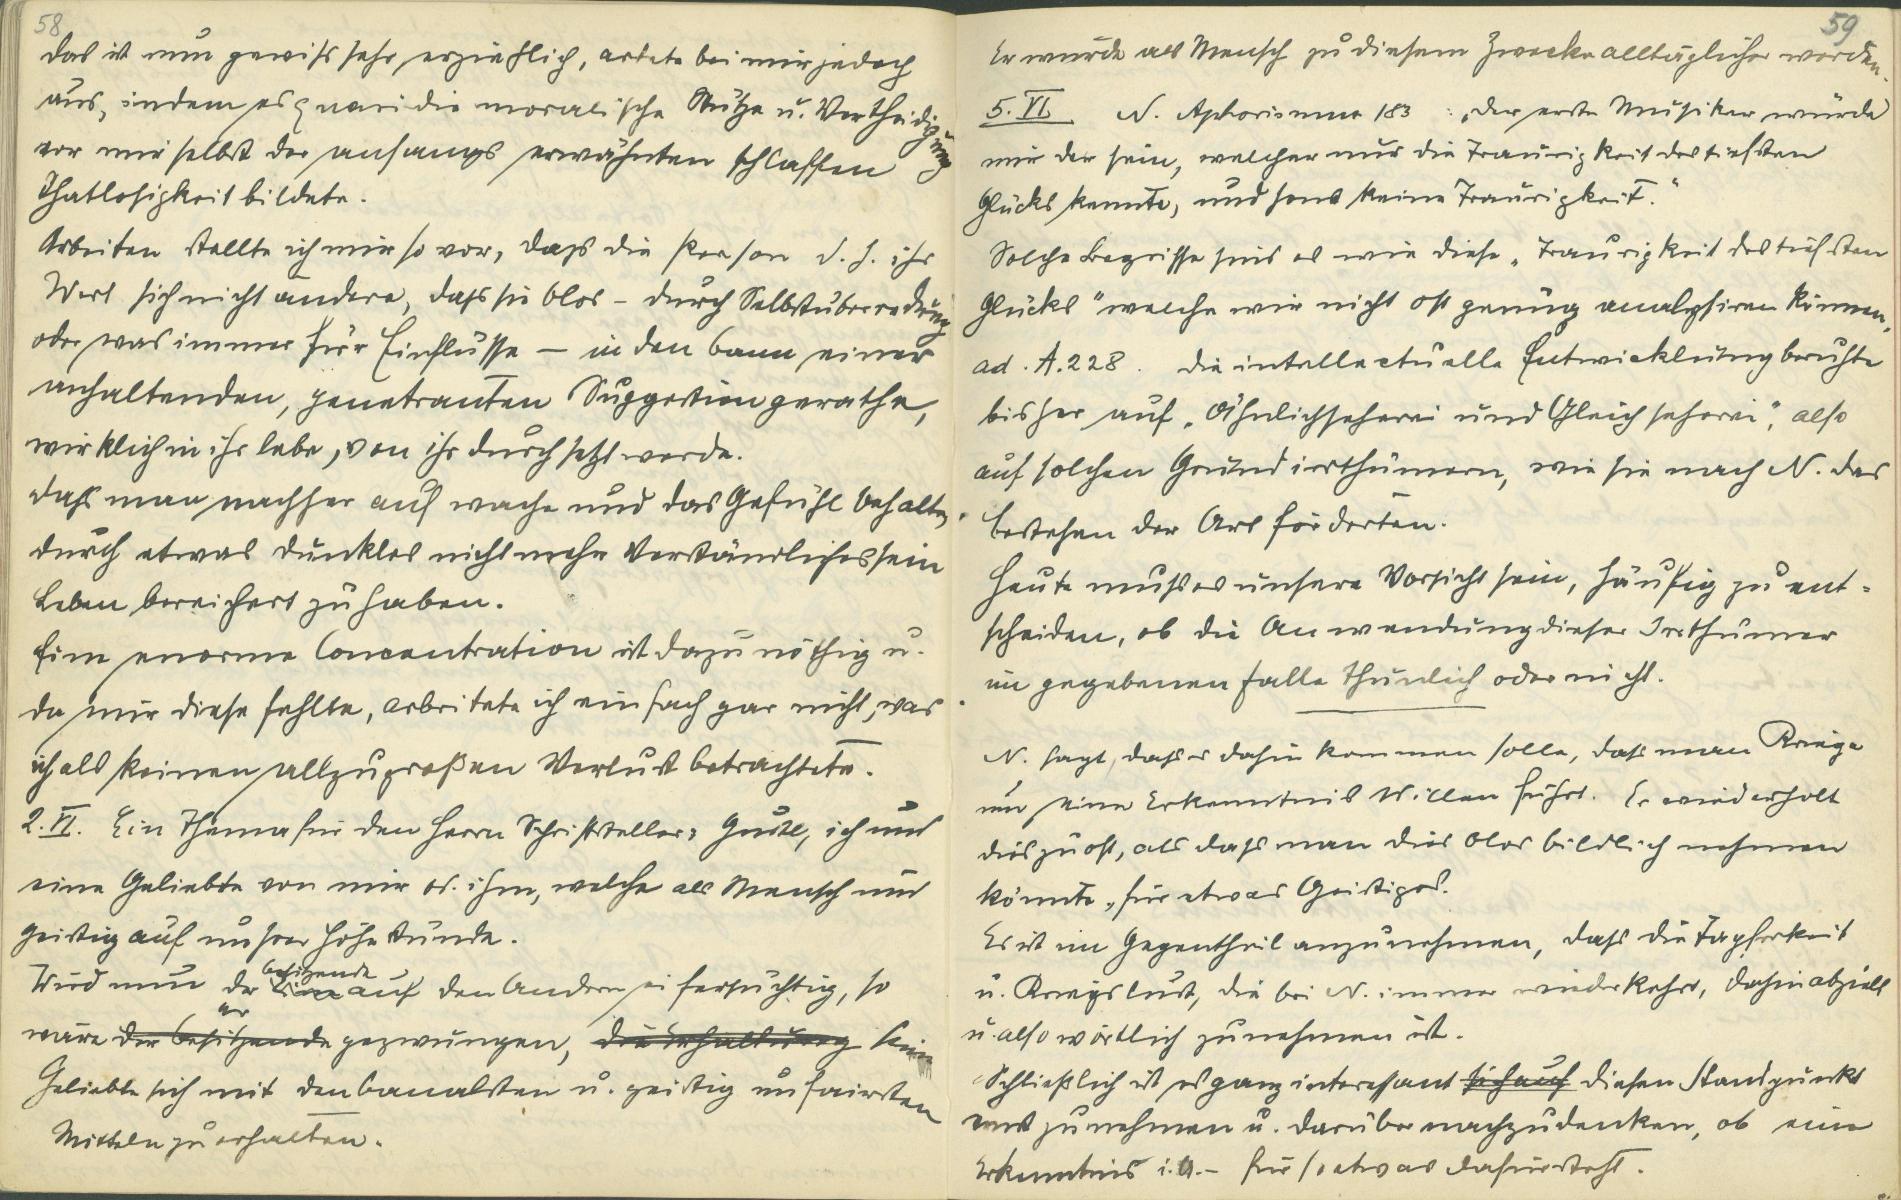 58
das ist nun gewiss sehr erziehlich, artete bei mir jedoch
aus, indem es quasi die moralische Stütze u. Vertheidigung
vor mir selbst der anfangs erwähnten schlaffen
Thatlosigkeit bildete.
Arbeiten stellte ich mir so vor, dass die Person d. h. ihr
Wert sich nicht ändere, dass sie blos – durch Selbstüberredung
oder was immer für Einflüsse – in den Bann einer
anhaltenden, penetranten Suggestion gerathe,
wirklich in ihr lebe, von ihr durchsetzt werde.
dass man nachher auf wache und das Gefühl behalte,
durch etwas dunkles nicht mehr Verständliches sein
Leben bereichert zu haben.
Eine enorme Concentration ist dazu nöthig u.
da mir diese fehlte, arbeitete ich einfach gar nicht, was
ich als keinen allzugroßen Verlust betrachtete.
2. VI. Ein Thema für den Herrn Schriftsteller: Gustl, ich und
eine Geliebte von mir od. ihm, welche als Mensch und
geistig auf unsrer Höhe stünde.
Wird nun der besitzende auf den Andern eifersüchtig, so
wäre er der besitzende gezwungen, die Erhaltung seine
Geliebte sich mit den banalsten u. geistig unfairsten
Mitteln zu erhalten.
59
Er würde als Mensch zu diesem Zwecke alltäglicher werden.
5. VI N. Aphorismus 183: „Der erste Musiker würde
mir der sein, welcher nur die Traurigkeit des tiefsten
Glücks kennte, und sonst keine Traurigkeit."
Solche Begriffe sind es wie diese „Traurigkeit des tiefsten
Glücks" welche wir nicht oft genug analysiren können.
ad. A. 228. Die intellectuelle Entwicklung beruhte
bisher auf „Ähnlichseherei und Gleichseherei", also
auf solchen Grundirrthümern, wie sie nach N. das
Bestehen der Art förderten.
Heute muss es unsere Vorsicht sein, häufig zu ent-
scheiden, ob die Anwendung dieser Irrthümer
im gegebenen Falle thunlich oder nicht.
N. sagt, dass es dahin kommen solle, dass man Kriege
um einer Erkenntnis Willen führt. Er wiederholt
dies zu oft, als dass man dies blos bildlich nehmen
könnte, für etwas Geistiges.
Es ist im Gegentheil anzunehmen, dass die Tapferkeit
u. Kriegslust, die bei N. immer wiederkehrt, dahin abzielt
u. also wörtlich zu nehmen ist.
Schließlich ist es ganz interessant sich auf diesen Standpunkt
ernst zu nehmen u. darüber nachzudenken, ob eine
Erkenntnis i. A. – für so etwas dafürsteht.